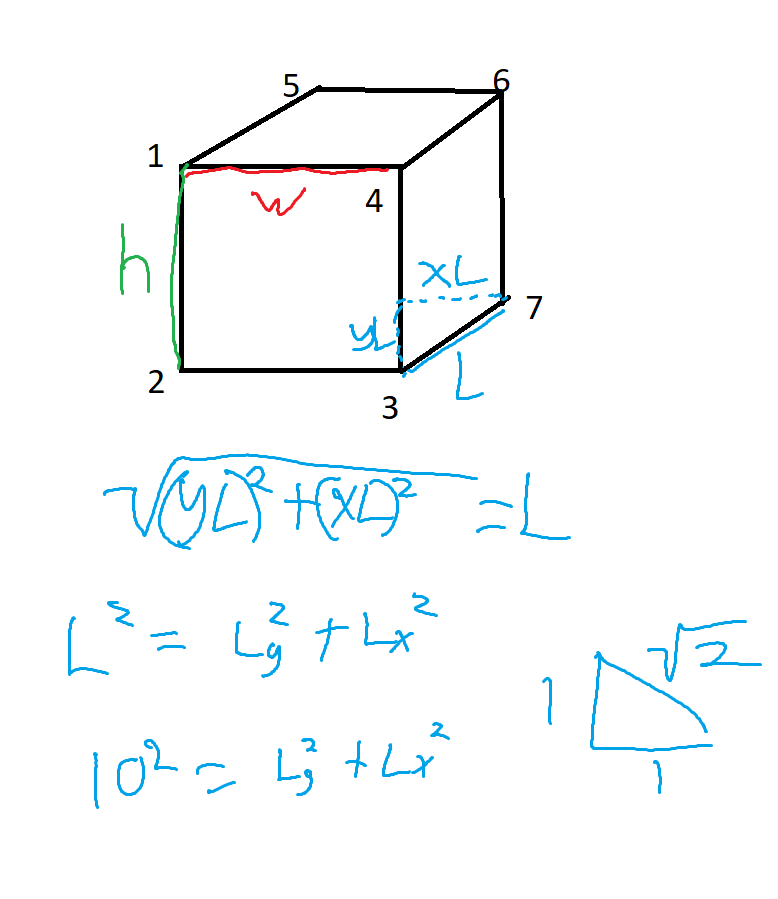 5 6
1
w 4
h
xL
7
yL
2 L
3
√(yL)²+(xL)² =L
L² = Ly² + Lx²
√2
1
10² = Ly² + Lx²
1